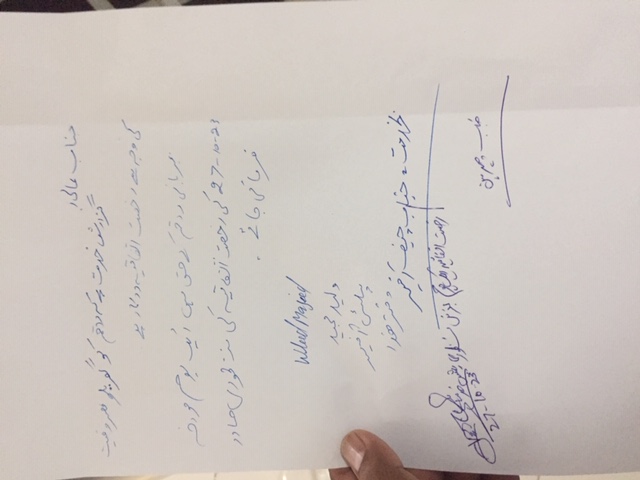 جناب عالی!
گزارش خدمت ہے کہ راقم کو گھریلو مصروفیت
کی وجہ سے رخصت اتفاقیہ درکار ہے
مہربانی راقم کے حق میں ایک یوم مورخہ
27-10-23 کی رخصت اتفاقیہ کی منظوری صادر
فرمائی جائے .
Wlied Majeed
ولید مجید
پبلسٹی آفیسر
دفتر ھذا
بخدمت جناب چیف آفیسر
رخصت اتفاقیہ ایک یوم بغرض منظوری پیش
27-10-23
جناب چیئرمین